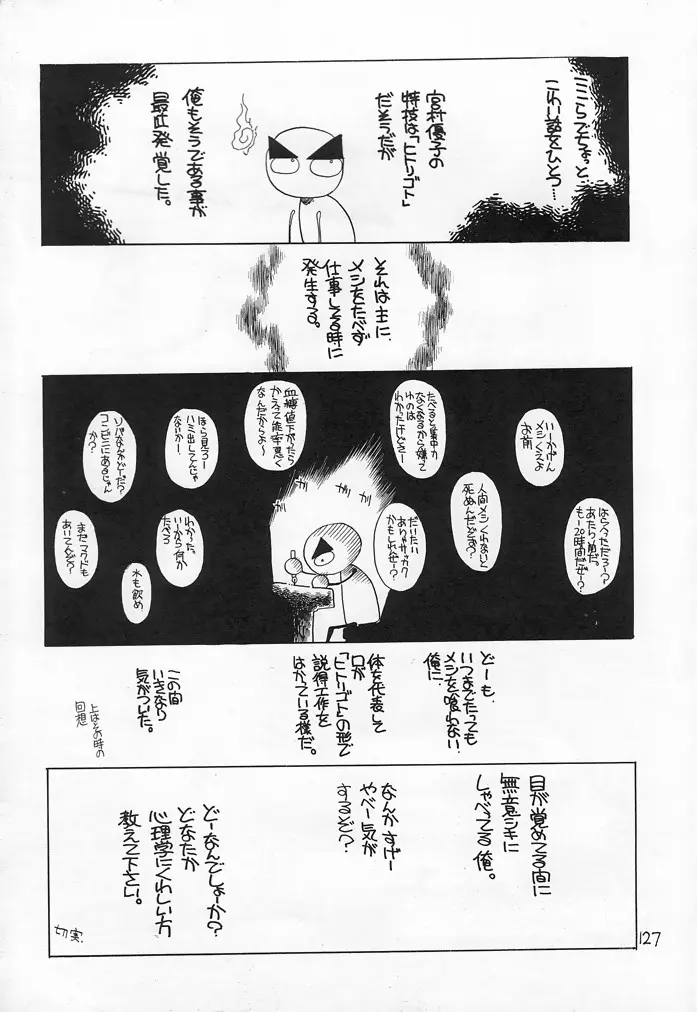 ここらでちょっと
こわい話をひとつ…
宮村優子の
特技は「ヒトリゴト」
だそうだが
俺もそうである事が
最近発覚した。
それは主に、
メシをたべず
仕事してる時に
発生する。
いーかげん
メシくえよ
お前
たべると集中力
なくなるから嫌て
わのは
わかったけどさー
血糖値下がったら
かえって能率悪く
なんだからよ〜
ほら見ろー
ハミ出してんじゃ
ないかー。
ソバなんかどーだ?
コンビニにあるじゃん
か?
はらへっただろー?
あたり前だ。
もー20時間だぜー?
人間メシくわないと
死ぬんだとぞ?
だいたい
ありゃサッカク
かもしれねー?
わかった。
いーから何か
たべろ
水も飲め
まだマクドも
あいてんぞ?
どーも、
いつまでたっても
メシを喰わない
俺に、
体を代表して
口が
「ヒトリゴト」の形で
説得工作を
はかっている様だ。
この間
いきなり
気がついた。
上はその時の
回想
目が覚めてる間に
無意シキに
しゃべってる俺。
なんかすげー
やべー気が
するぞ?
どーなんでしょーか?
どなたか
心理学にくわしい方
教えて下さい。
切実.
127